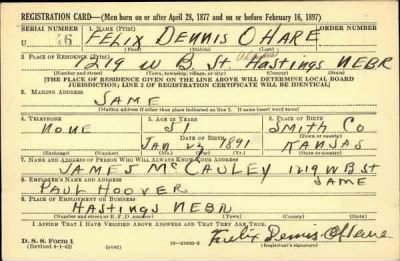 REGISTRATION CARD—(Men born on or after April 28, 1877 and on or before February 16, 1897)
SERIAL NUMBER 1. NAME (Print) ORDER NUMBER
U 46 FELIX DENNIS O HARE
(First) (Middle) (Last)
2. PLACE OF RESIDENCE (Print)
1219 W B St HASTINGS NEBR
(Number and street) (Town, township, village, or city) (County) (State)
[THE PLACE OF RESIDENCE GIVEN ON THE LINE ABOVE WILL DETERMINE LOCAL BOARD
JURISDICTION; LINE 2 OF REGISTRATION CERTIFICATE WILL BE IDENTICAL]
3. MAILING ADDRESS
SAME
[Mailing address if other than place indicated on line 2. If same insert word same]
4. TELEPHONE 5. AGE IN YEARS 6. PLACE OF BIRTH
NONE 51 SMITH CO
DATE OF BIRTH (Town or county)
JAN 23 1891 KANSAS
(Mo.) (Day) (Yr.) (State or country)
7. NAME AND ADDRESS OF PERSON WHO WILL ALWAYS KNOW YOUR ADDRESS
JAMES McCAULEY 1219 W B ST
8. EMPLOYER'S NAME AND ADDRESS SAME
PAUL HOOVER
9. PLACE OF EMPLOYMENT OR BUSINESS
HASTINGS NEBR
(Number and street or R. F. D. number) (Town) (County) (State)
I AFFIRM THAT I HAVE VERIFIED ABOVE ANSWERS AND THAT THEY ARE TRUE.
D. S. S. Form 1 Felix Dennis O'Hare
(Revised 4-1-42) 16—21630-2 (Registrant's signature)